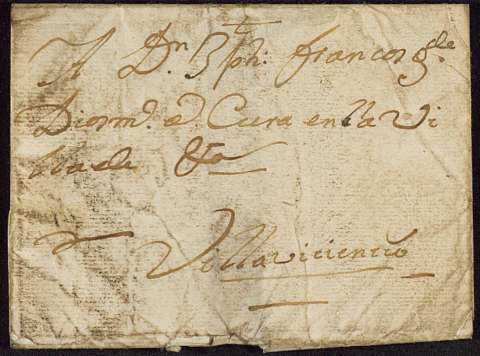 A Dn Jph. franco g.de
Diosm.d e Cura en la Vi
lla de &a
Villavicencio